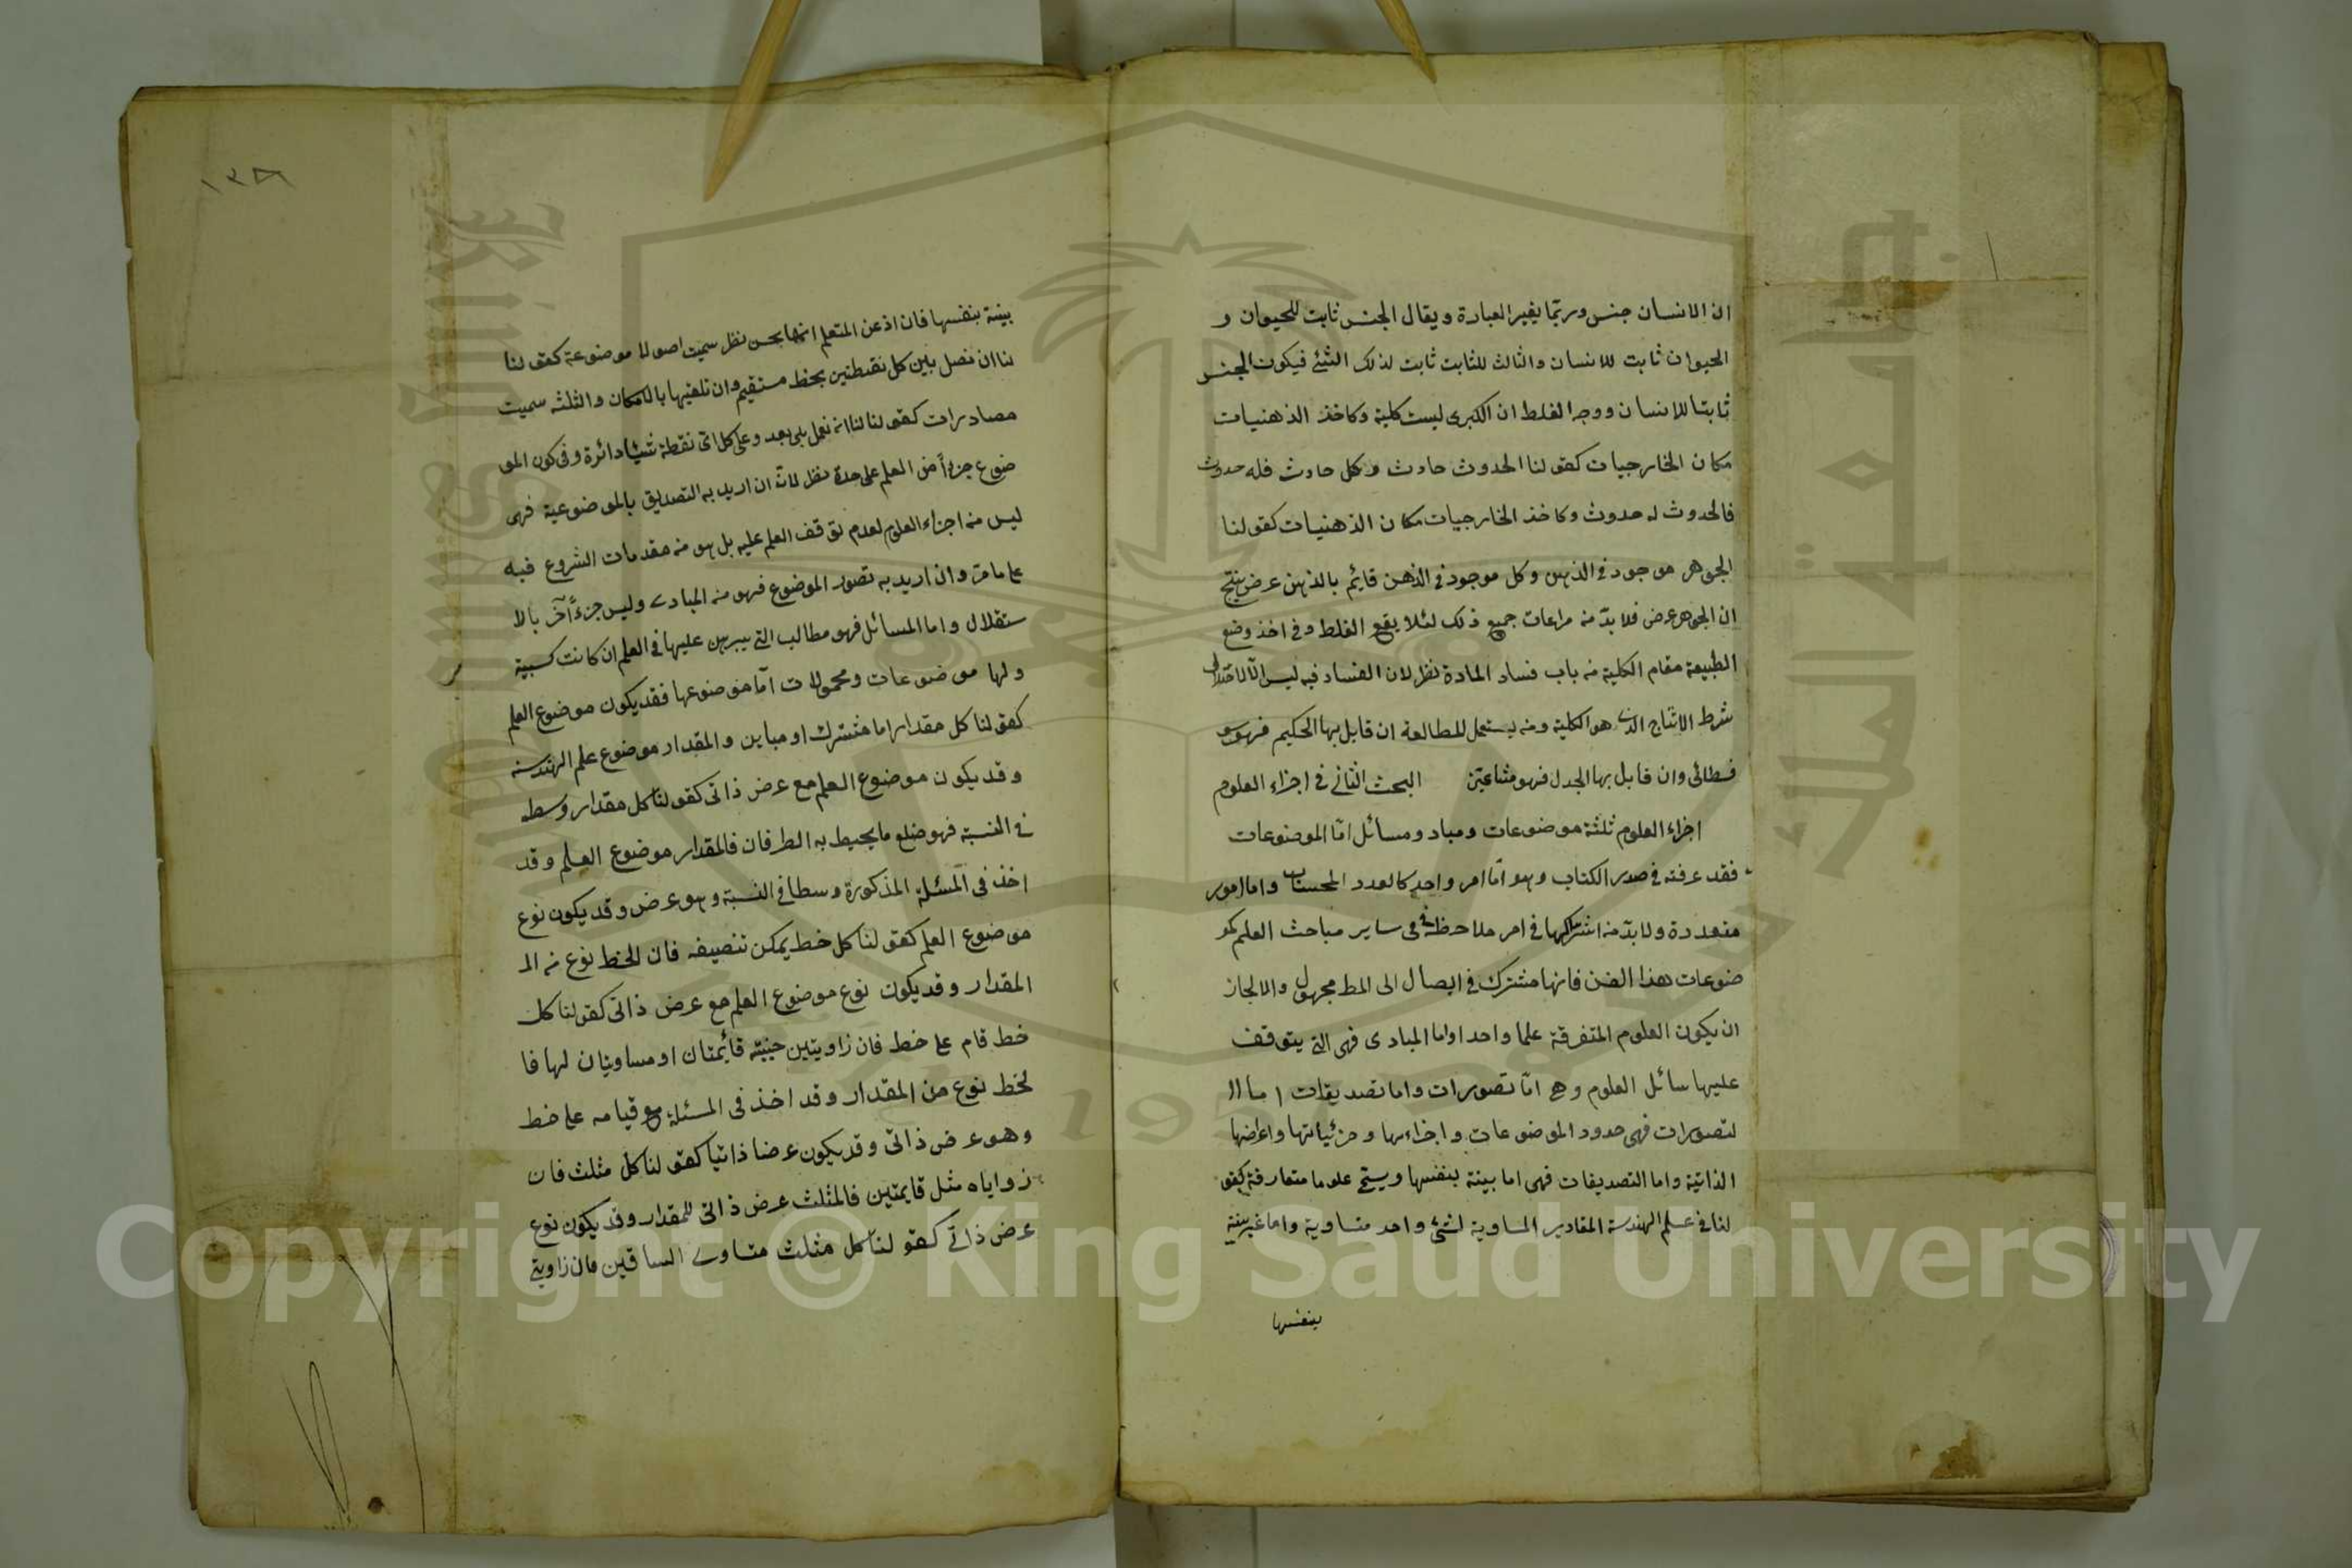 ان الانسان جنس وربما يغير العبارة ويقال الجنس ثابت للحيوان و
الحيوان ثابت للانسان والثالث للثابت ثابت لذلك الشئ فيكون الجنس
ثابتا للانسان ووجه الغلط ان الكبرى ليست كلية وكاخذ الذهنيات
مكان الخارجيات كقولنا الحدوث حادث وكل حادث فله حدوث
فالحدوث له حدوث وكاخذ الخارجيات مكان الذهنيات كقولنا
الجوهر موجود في الذهن وكل موجود في الذهن قائم بالذهن عرض ينتج
ان الجوهر عرض فلا بد منه مراعات جميع ذلك لئلا يقع الغلط وفي اخذ وضع
الطبيعة مقام الكلية منه باب فساد المادة نظر لان الفساد فيه ليس الا لاختلال
شرط الانتاج الذى هو الكلية ومنه يستعمل للمطالعة ان قابل بها الحكيم فهو سو
فسطائى وان قابل بها الجدل فهو مشاغبى البحث الثانى في اجزاء العلوم
اجزاء العلوم ثلثة موضوعات ومباد ومسائل اما الموضوعات
فقد عرفته في صدر الكتاب وهو اما امر واحد كالعدد للحساب واما امور
متعددة ولا بد منه اشتراكها في امر ملاحظة في ساير مباحث العلم كمو
ضوعات هذا الفن فانها مشترك في ايصال الى المط مجهول والا لجاز
ان يكون العلوم المتفرقة علما واحدا واما المبادى فهى التى يتوقف
عليها سائل العلوم وهى اما تصورات واما تصديقات اما ال
لتصورات فهى حدود الموضوعات واجزاءها وجزئياتها واعراضها
الذاتية واما التصديقات فهى اما بينة بنفسها ويسمى علوما متعارفة كقو
لنا في علم الهندسة المقادير المساوية لشئ واحد متساوية واما غير بينة
بنفسها
١٣٨
بينة بنفسها فان اذعن المتعلم انها بحسن نظر سميت اصولا موضوعة كقولنا
لنا ان نصل بين كل نقطتين بخط مستقيم وان تلقيها بالامكان والثلثه سميت
مصادرات كقولنا لنا ان نعمل بل بعد وعلى كل اى نقطة شيئا دائرة وفى كون المو
ضوع جزءا من العلم على حدة نظر لانه ان اريد به التصديق بالموضوعية فهى
ليس منه اجزاء العلوم لعدم توقف العلم عليه بل هو منه مقدمات الشروع فيه
على ما مر وان اريد به تصور الموضوع فهو منه المبادى وليس جزءا آخر بالا
ستقلال واما المسائل فهو مطالب التى يبرهن عليها في العلم ان كانت كسبية
ولها موضوعات ومحمولات اما موضوعها فقد يكون موضوع العلم
كقولنا كل مقدار اما مشترك او مباين والمقدار موضوع علم الهندسه
وقد يكون موضوع العلم مع عرض ذاتى كقولنا كل مقدار وسط
في النسبة فهو ضلع ما يحيط به الطرفان فالمقدار موضوع العلم وقد
اخذ فى المسئلة المذكورة وسطا في النسبة وهو عرض وقد يكون نوع
موضوع العلم كقولنا كل خط يمكن تنصيفه فان الخط نوع منه الم
المقدار وقد يكون نوع موضوع العلم مع عرض ذاتى كقولنا كل
خط قام على خط فان زاويتين جنبيته قائمتان او مساويتان لها فا
لخط نوع من المقدار وقد اخذ فى المسئلة مع قيامه على خط
وهو عرض ذاتى وقد يكون عرضا ذاتيا كقولنا كل مثلث فان
زواياه مثل قايمتين فالمثلث عرض ذاتى للمقدار وقد يكون نوع
عرض ذاتى كقولنا كل مثلث متساوى الساقين فان زاويتى
Copyright © King Saud University
King Saud University
1957